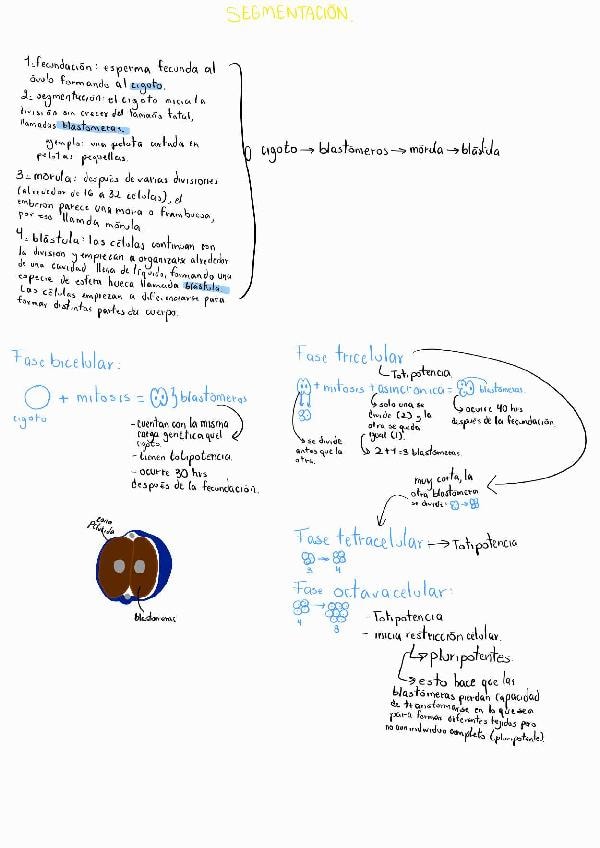 SEGMENTACIÓN.
1. fecundación: esperma fecunda al
óvulo formando al cigoto.
2. segmentación: el cigoto inicia la
división sin crecer del tamaño total,
llamadas blastómeras.
ejemplo: una pelota cortada en
pelotas pequeñas.
3. mórula: después de varias divisiones
(alrededor de 16 a 32 células), el
embrión parece una mora o frambuesa,
por eso llamda mórula
4. blástula: las células continuan con
la división y empiezan a organizarse alrededor
de una cavidad llena de líquido, formando una
especie de esfera hueca llamada blástula.
Las células empiezan a diferenciarse para
formar distintas partes du cuerpo.
cigoto → blastómeros → mórula → blástula
Fase bicelular:
+ mitosis = } blastómeros
cigoto
- cuentan con la misma
carga genética quel
cigoto.
- tienen totipotencia.
- ocurre 30 hrs
después de la fecundación.
zona
pelúcida
blastómeras
Fase tricelular
Totipotencia
+ mitosis + asincrónica = blastómeras.
→ se divide
antes que la
otra.
→ solo una se
divide (2) y la
otra se queda
igual (1).
→ 2+1=3 blastómeras.
→ ocurre 40 hrs
después de la fecundación.
muy corta, la
otra blastómera
se divide: →
Fase tetracelular → Totipotencia
→
3 4
Fase octavacelular:
→
4 8
- Totipotencia
- inicia restricción celular.
→ pluripotentes.
→ esto hace que las
blastómeras pierdan capacidad
de transformarse en lo que sea
para formar diferentes tejidos pero
no aun individuo completo (pluripotente)